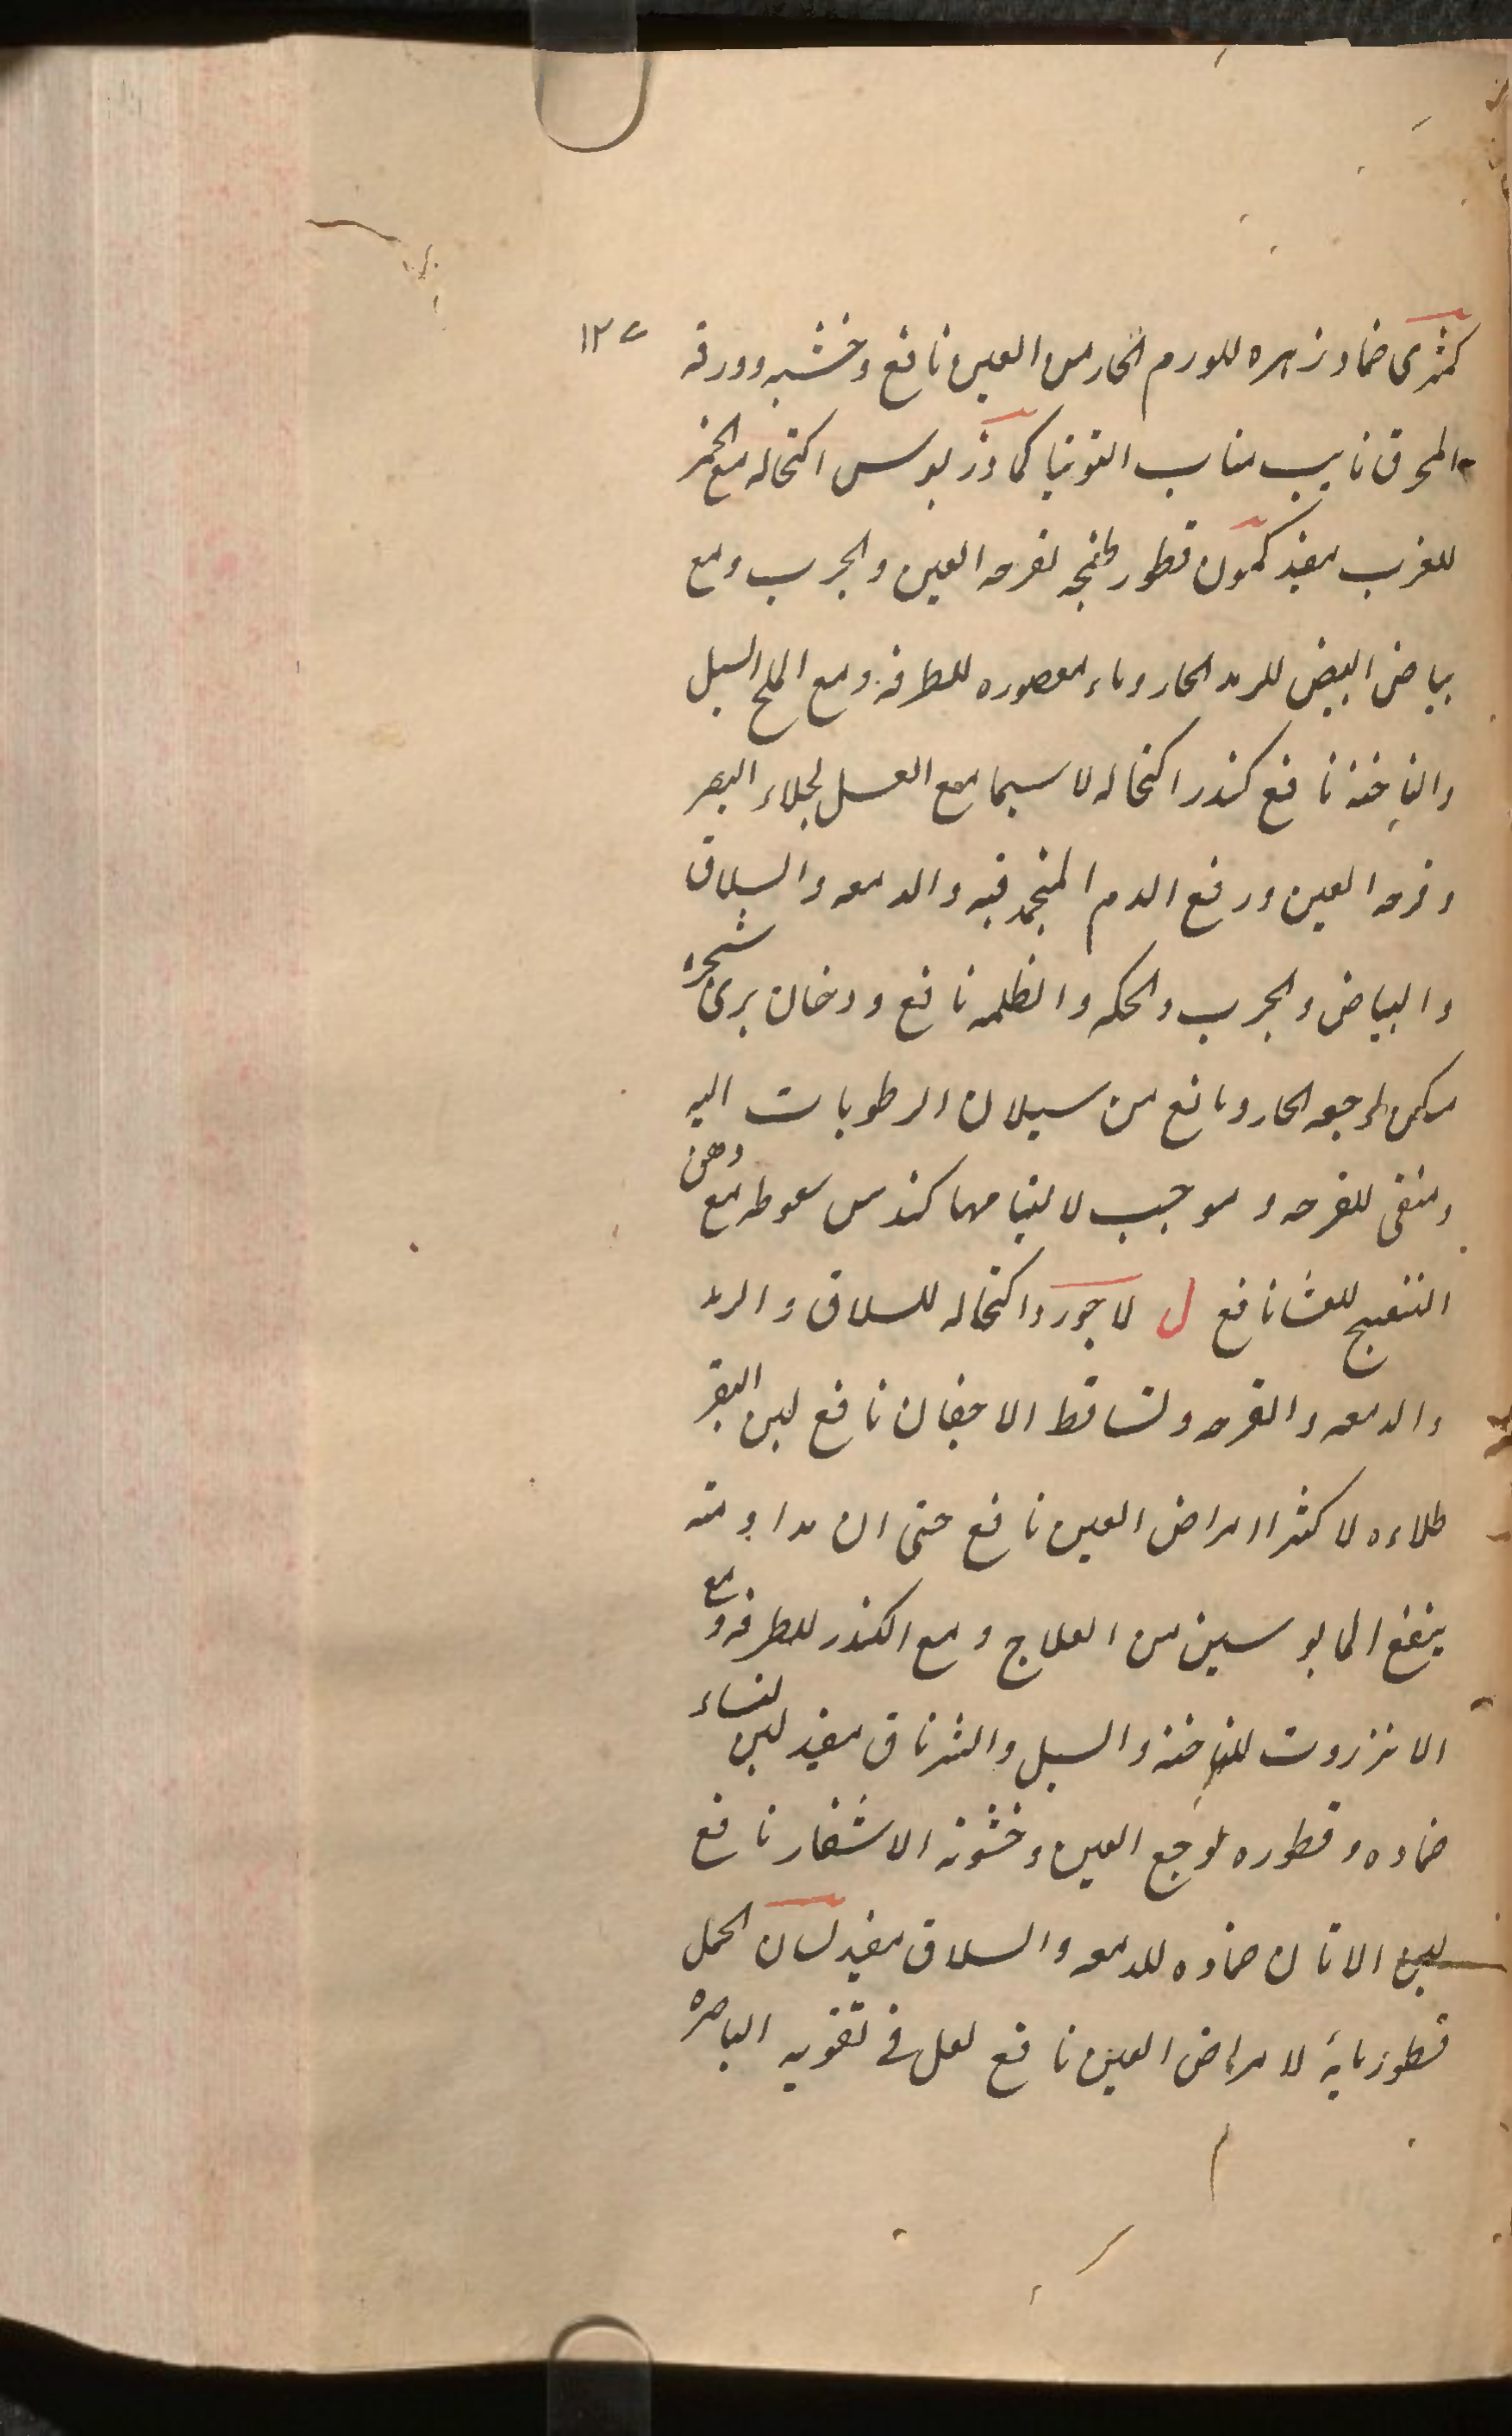 كمثرى ضماد زهره للورم الحار من العين نافع وخشبه وورقه ١٢٥
المحرق نايب مناب التوتيا كمادريوس اكتحاله مع الخمر
للغرب مفيد كمون قطور طبخه لقرحه العين والجرب ومع
بياض البيض للرمد الحار وماء معصوره للطرفه ومع الملح السبل
والناخنه نافع كندر اكتحاله لا سيما مع العسل لجلاء البصر
وقرحه العين ورفع الدم المنجمد فيه والدمعه والسلاق
والبياض والجرب والحكه والظلمه نافع ودخان برى شجره
مسكن لوجعه الحار ومانع من سيلان الرطوبات اليه
ومنقى للقرحه وموجب لالتيامها كندس سعوطه مع دهن
البنفسج للعشا نافع ل لاجورد اكتحاله للسلاق والرمد
والدمعه والقرحه ولتساقط الاجفان نافع لبن البقر
طلاءه لاكثر امراض العين نافع حتى ان مداومته
ينفع المايوسين من العلاج ومع الكندر للطرفه ومع
الانزروت للناخنه والسبل والشرناق مفيد لبن النساء
ضماده وقطوره لوجع العين وخشونه الاشفار نافع
لبن الاتان ضماده للدمعه والسلاق مفيد لسان الحمل
قطور مائه لامراض العين نافع لعل فى تقويه الباصره